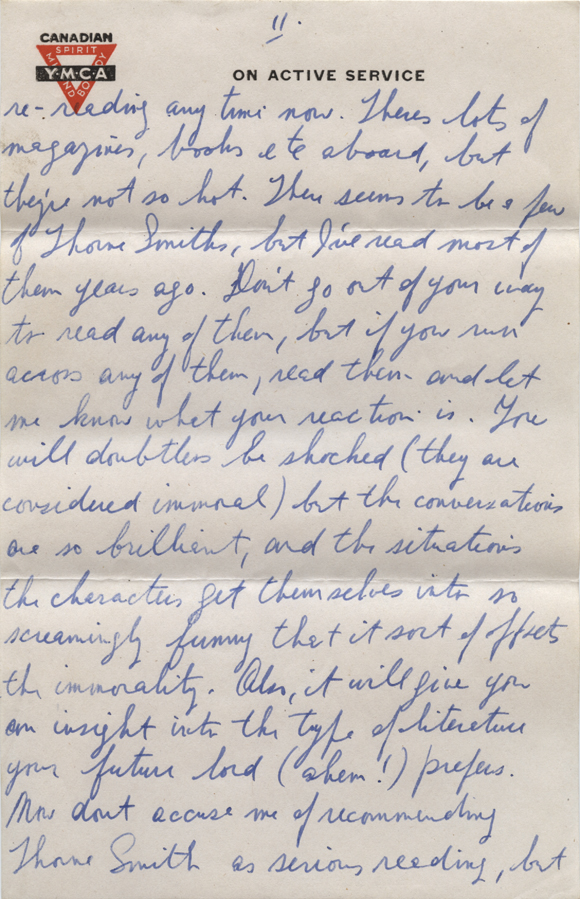 11.
CANADIAN
SPIRIT
MIND
BODY
Y·M·C·A
ON ACTIVE SERVICE
re-reading any time now. Theres lots of
magazines, books etc aboard, but
they're not so hot. There seems to be a few
of Thorne Smiths, but I've read most of
them years ago. Don't go out of your way
to read any of them, but if you run
across any of them, read them and let
me know what your reaction is. You
will doubtless be shocked (they are
considered immoral) but the conversations
are so brilliant, and the situations
the characters get themselves into so
screamingly funny that it sort of offsets
the immorality. Also, it will give you
an insight into the type of literature
your future lord (ahem!) prefers.
Now dont accuse me of recommending
Thorne Smith as serious reading, but